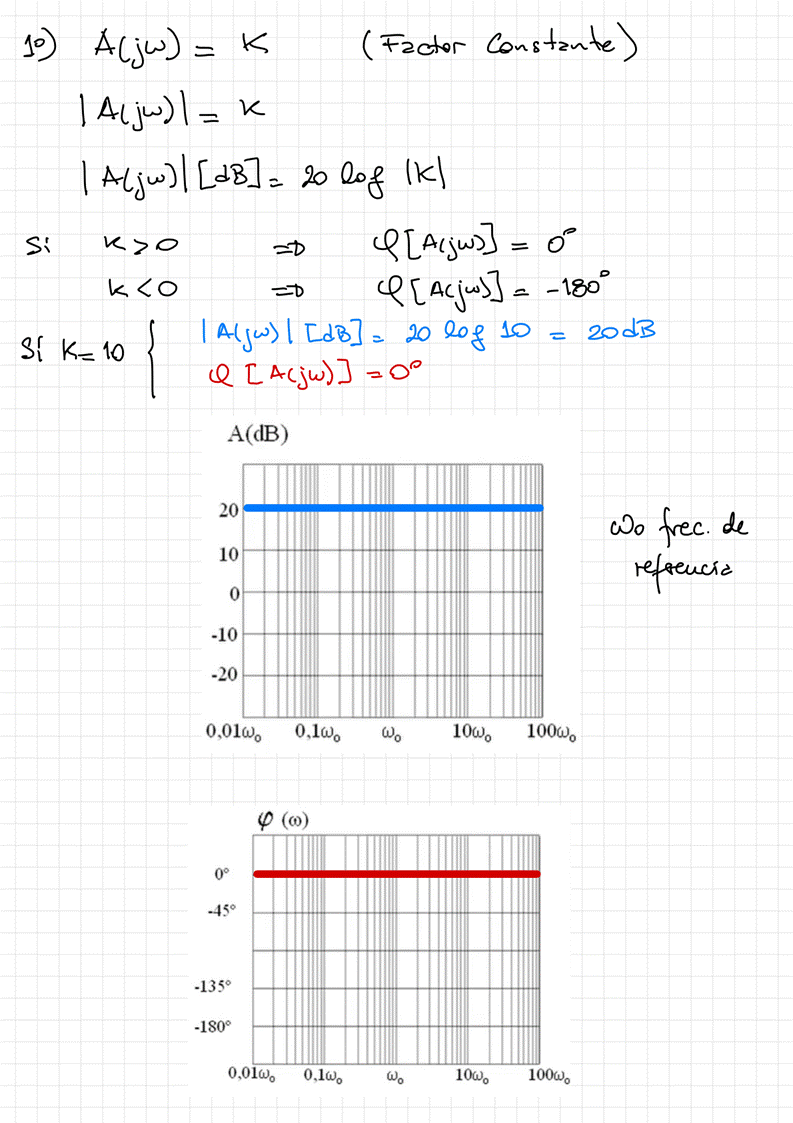 1º) A(jω) = K (Factor Constante)
|A(jω)| = K
|A(jω)| [dB] = 20 log |K|
Si K > 0 ⇒ φ[A(jω)] = 0°
K < 0 ⇒ φ[A(jω)] = -180°
Sí K = 10 { |A(jω)| [dB] = 20 log 10 = 20 dB
φ [A(jω)] = 0°
A(dB)
20
10
0
-10
-20
0,01ω₀ 0,1ω₀ ω₀ 10ω₀ 100ω₀
ω₀ frec. de
referencia
φ (ω)
0°
-45°
-135°
-180°
0,01ω₀ 0,1ω₀ ω₀ 10ω₀ 100ω₀